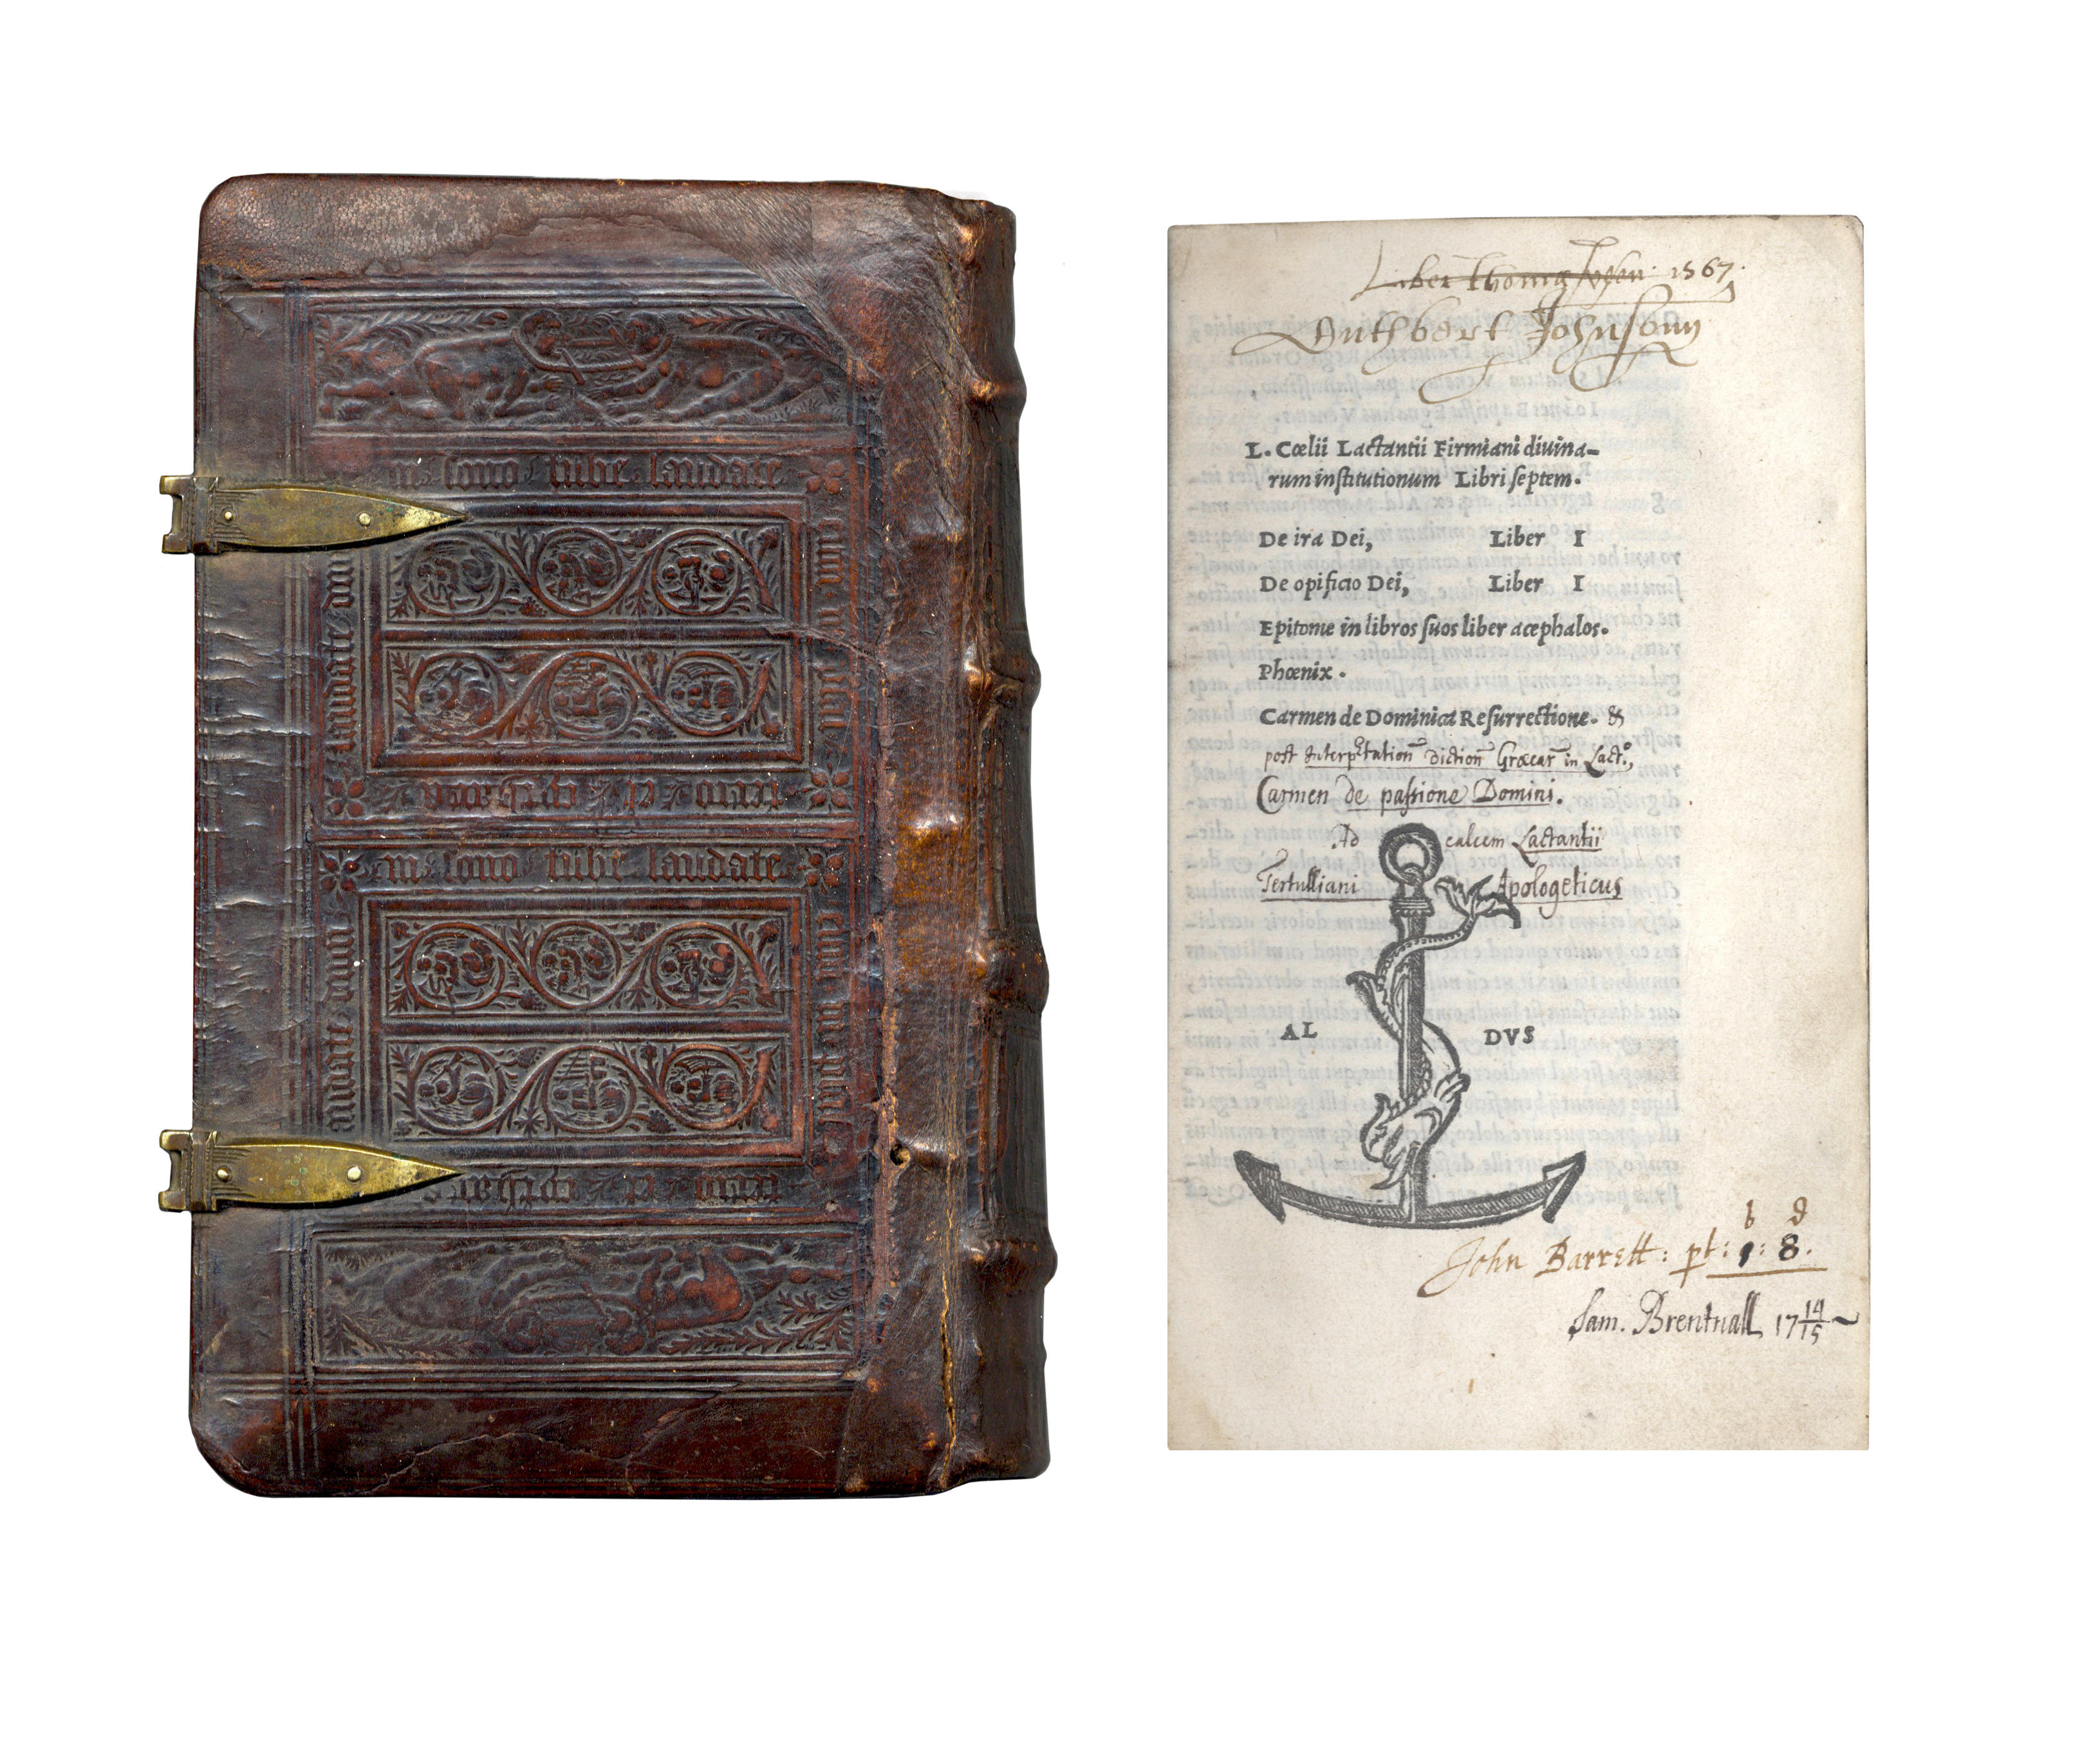 in sono tube laudate
laudate dnm
eum in psal
terio et cythara
in sono tube laudate
laudate dnm
eum in psal
terio et cythara
Liber Thomę 1567.
Cuthbert Johnson
L. Cœlii Lactantii Firmiani diuina-
rum institutionum Libri septem.
De ira Dei, Liber I
De opificio Dei, Liber I
Epitome in libros suos liber acephalos.
Phœnix.
Carmen de Dominica Resurrectione. &
post Interp̃tation̄ Diction̄ Græcar̄ in Lact:,
Carmen de passione Domini.
Ad calcem Lactantii
Tertulliani Apologeticus
AL DVS
d
John Barrett: pt: 1: 8.
Sam. Brentnall 17 14/15